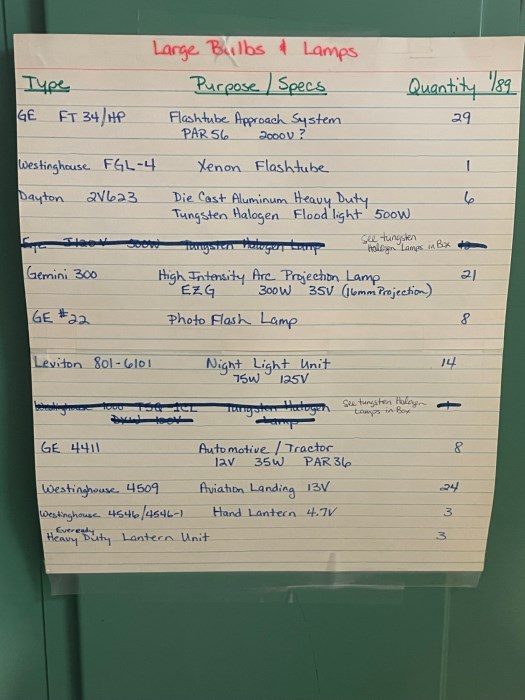 Large Bulbs & Lamps
Type Purpose / Specs Quantity 1/89
GE FT 34/HP Flashtube Approach System 29
PAR 56 2000V?
Westinghouse FGL-4 Xenon Flashtube 1
Dayton 2V623 Die Cast Aluminum Heavy Duty 6
Tungsten Halogen Flood light 500W
See tungsten
500W Tungsten Halogen Lamp Halogen Lamps in Box
Gemini 300 High Intensity Arc Projection Lamp 21
EZG 300W 35V (16mm Projection)
GE #22 Photo Flash Lamp 8
Leviton 801-6101 Night Light Unit 14
75W 125V
Westinghouse 1000 Tungsten Halogen See tungsten Halogen
Lamp Lamps in Box
GE 4411 Automotive / Tractor 8
12V 35W PAR 36
Westinghouse 4509 Aviation Landing 13V 24
Westinghouse 4546/4546-1 Hand Lantern 4.7V 3
Eveready
Heavy Duty Lantern Unit 3